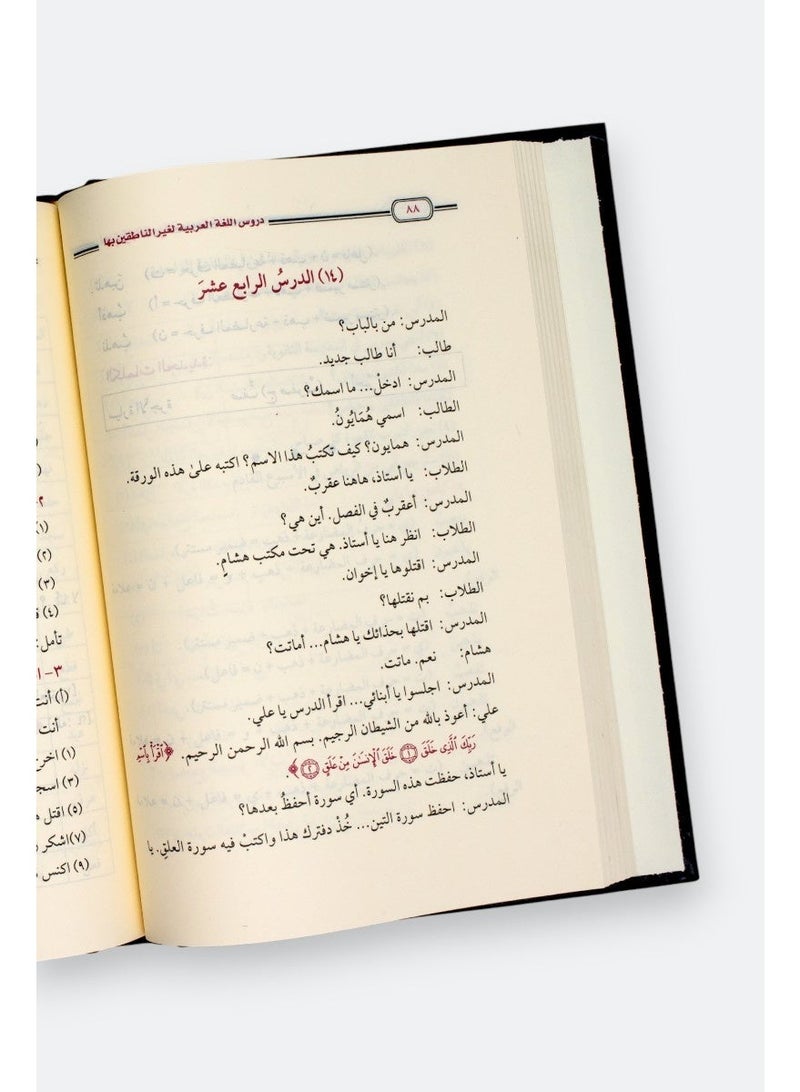 ٨٨
دروس اللغة العربية لغير الناطقين بها
(١٤) الدرسُ الرابع عشرَ
المدرس: من بالباب؟
طالب: أنا طالب جديد.
المدرس: ادخلْ... ما اسمك؟
الطالب: اسمي هُمَايُونُ.
المدرس: همايون؟ كيف تكتبُ هذا الاسم؟ اكتبه علىٰ هذه الورقة.
الطلاب: يا أستاذ، هاهنا عقربٌ.
المدرس: أعقربٌ في الفصل. أين هي؟
الطلاب: انظر هنا يا أستاذ. هي تحت مكتب هشامٍ.
المدرس: اقتلوها يا إخوان.
الطلاب: بم نقتلها؟
المدرس: اقتلها بحذائك يا هشام... أماتت؟
هشام: نعم. ماتت.
المدرس: اجلسوا يا أبنائي... اقرأ الدرس يا علي.
علي: أعوذ بالله من الشيطان الرجيم. بسم الله الرحمن الرحيم. ﴿ٱقۡرَأۡ بِٱسۡمِ
رَبِّكَ ٱلَّذِى خَلَقَ ۝١ خَلَقَ ٱلۡإِنسَٰنَ مِنۡ عَلَقٍ ۝٢﴾.
يا أستاذ، حفظت هذه السورة. أي سورة أحفظُ بعدها؟
المدرس: احفظ سورة التين... خُذْ دفترك هذا واكتبْ فيه سورة العلقِ. يا
(١)
(٢)
(٣)
(٤)
تأمل:
(أ) أنت
أنت
(١) اخر
(٣) اسج
(٥) اقتل
(٧) اشكر
(٩) اكنس